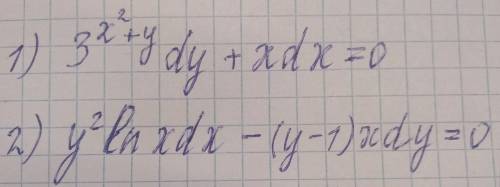 1) 3^{x^2+y} dy + x dx = 0
2) y^2 ln x dx - (y-1) x dy = 0